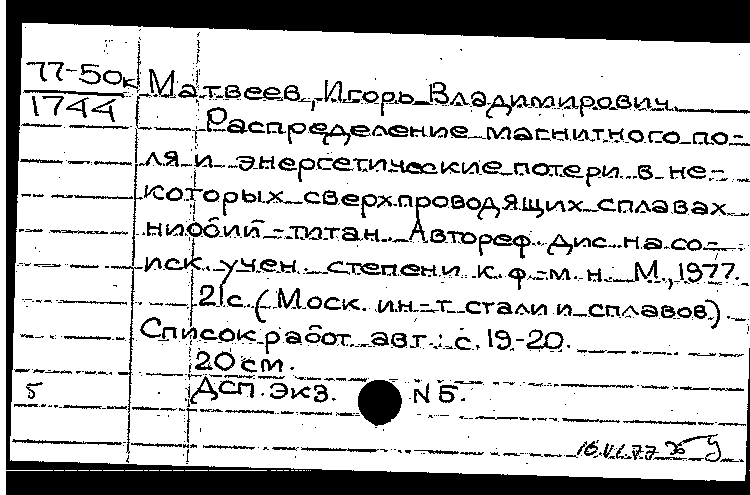 77-50к
1744
Матвеев, Игорь Владимирович.
Распределение магнитного по-
ля и энергетические потери в не-
которых сверхпроводящих сплавах
ниобий-титан. Автореф. дис. на со-
иск. учен. степени к. ф.-м. н. М., 1977.
21с. (Моск. ин-т стали и сплавов).
Список работ авт.: с. 19-20.
20 см.
5 ДСП. Экз. N 5.
16.VI.77